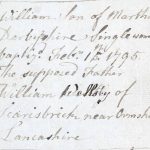 William Son of Martha
Derbyshire Singlewoman
bapt. Feb. 1st 1795
the supposed Father
William of
Scarisbrick near Ormskirk
Lancashire